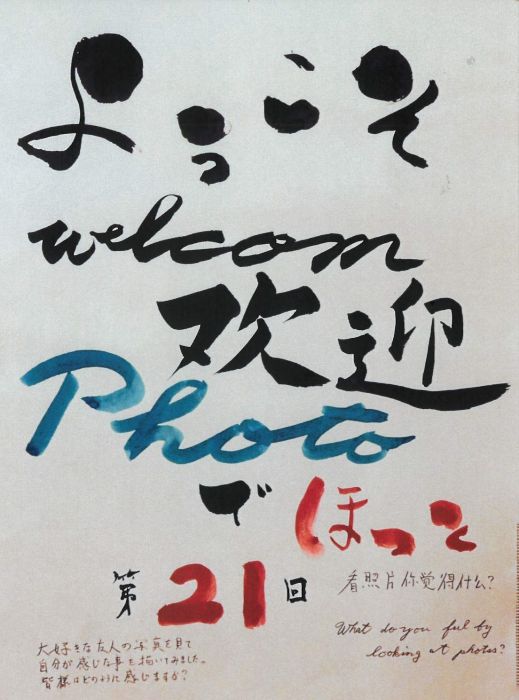 ようこそ
welcom
欢迎
Photo
で ほっと
第21回
看照片你觉得什么?
What do you ful by
looking at photos?
大好きな友人の写真を見て
自分が感じた事を描いてみました。
皆様はどのように感じますか?